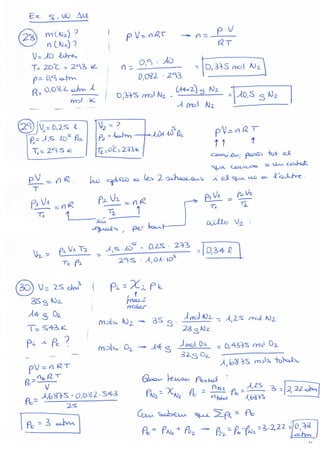 Ex. g. W ΔU
28 m(N₂)?
n(N₂)?
V = 10 litres
T = 20°C = 293 K
p = 0,9 atm
R = 0,082 atm·l / mol·K
pV = nRT → n = p·V / RT
n = 0,9 · 10 / 0,082 · 293 = 0,375 mol N₂
0,375 mol N₂ · (14×2) g N₂ / 1 mol N₂ = 10,5 g N₂
29 V₁ = 0,25 l
P₁ = 1,5 · 10⁵ Pa
T₁ = 295 K
V₂ = ?
P₂ = 1 atm → 1,01·10⁵ Pa
T₂ = 0°C = 273 K
pV = nRT
pV / T = nR.
P₁V₁ / T₁ = nR
P₂V₂ / T₂ = nR
són iguals, per tant
P₁V₁ / T₁ = P₂V₂ / T₂
aïllo V₂ :
V₂ = P₁V₁T₂ / T₁ P₂ = 1,5·10⁵ · 0,25 · 273 / 295 · 1,01·10⁵ = 0,34 l
30 V = 25 dm³
35 g N₂
14 g O₂
T = 543 K
Pᵢ i Pt ?
Pᵢ = Xᵢ Pt
fracció molar
mols N₂ → 35 g · 1 mol N₂ / 28 g N₂ = 1,25 mol N₂
mols O₂ → 14 g · 1 mol O₂ / 32 g O₂ = 0,4375 mol O₂
1,6875 mols totals
pV = nRT
Pt = nt R T / V
Pt = 1,6875 · 0,082 · 543 / 25
Pt = 3 atm
P N₂ = X N₂ · Pt = n N₂ / n total · Pt = 1,25 / 1,6875 · 3 = 2,22 atm
Com sabem que ΣPᵢ = Pt
Pt = P N₂ + P O₂ → P O₂ = Pt - P N₂ = 3 - 2,22 = 0,78 atm